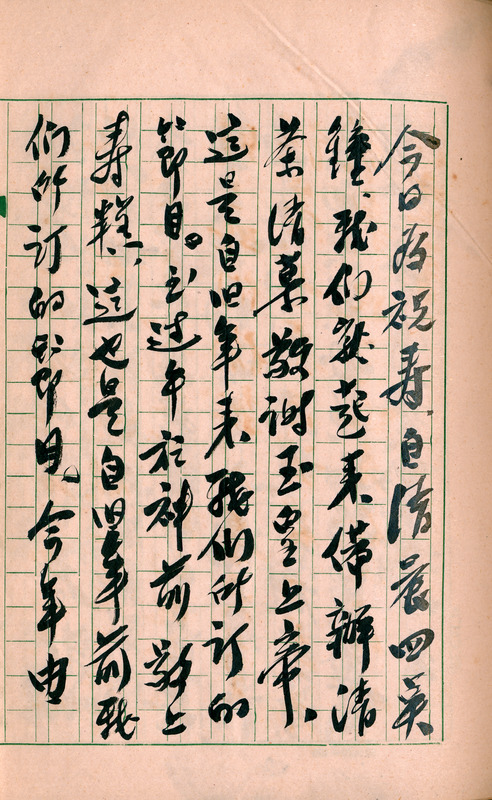 今日为祝寿自清晨四点
鐘、我们就起来備辦清
茶清菓敬謝玉皇上帝、
這是自旧年来我们所订的
節目。至過午於神前敬上
寿糕、這也是自旧年前我
们所订的節目、今年由